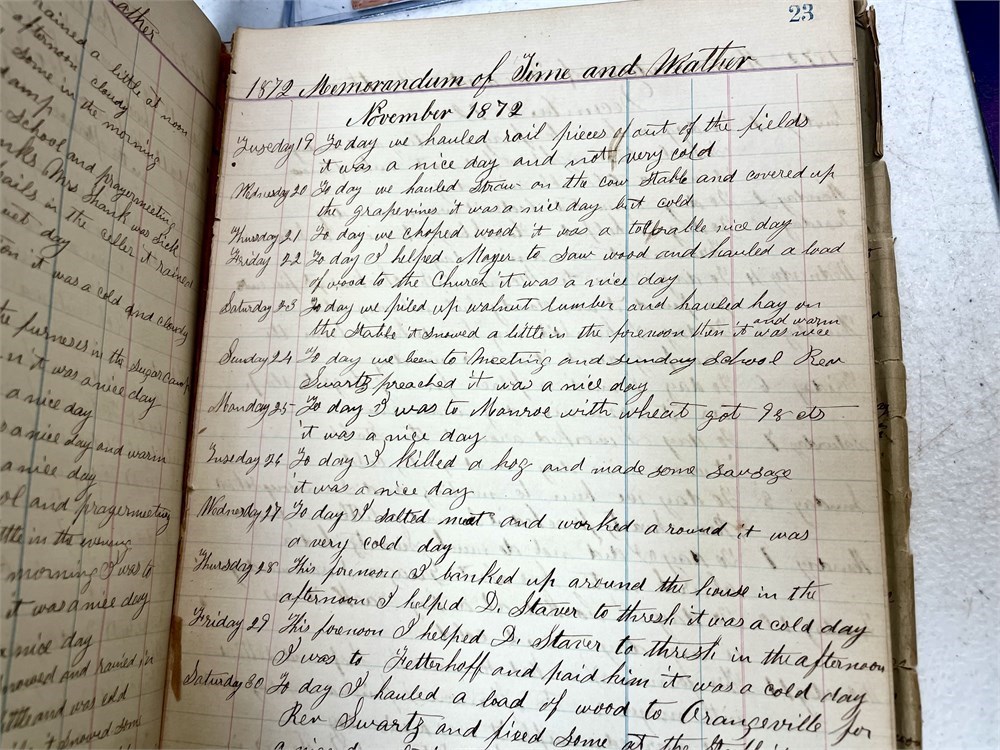 ather
rained a little at noon
afternoon cloudy
some in the morning
damp
School and prayermeeting
Mrs Shank was sick
in the celler it rained
wet day
it was a cold and cloudy
the furneses in the sugar camp
it was a nice day
a nice day
a nice day and warm
a nice day
and prayermeeting
in the evening
morning I was to
it was a nice day
nice day
snowed and rained in
little and was cold
it snowed som
23
1872 Memorandum of Time and Weather
November 1872
Tuseday 19 To day we hauled rail pieces of out of the fields
it was a nice day and not very cold
Wednesday 20 To day we hauled straw on the cow stable and covered up
the grapevines it was a nice day but cold
Thursday 21 To day we choped wood it was a tollerable nice day
Friday 22 To day I helped Moyer to saw wood and hauled a load
of wood to the Church it was a nice day
Saturday 23 To day we piled up walnut lumber and hauled hay on
the stable it snowed a little in the forenoon then it was nice and warm
Sunday 24 To day we been to meeting and sunday school Rev
Swartz preached it was a nice day
Monday 25 To day I was to Monroe with wheat got 98 cts
it was a nice day
Tuseday 26 To day I killed a hog and made some sausage
it was a nice day
Wednesday 27 To day I salted meat and worked around it was
a very cold day
Thursday 28 This forenoon I banked up around the house in the
afternoon I helped D. Staver to thresh it was a cold day
Friday 29 This forenoon I helped D. Staver to thresh in the afternoon
I was to Fetterhoff and paid him it was a cold day
Saturday 30 To day I hauled a load of wood to Orangeville for
Rev Swartz and fixed some at the
a nice day